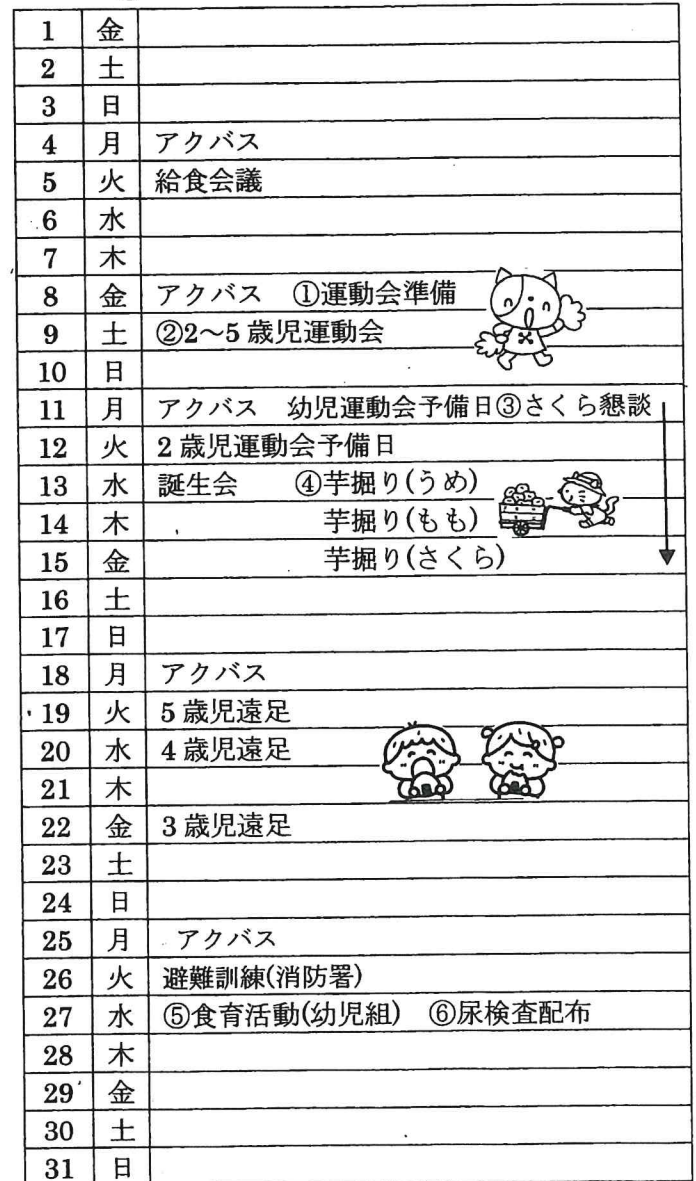 1 金
2 土
3 日
4 月 アクバス
5 火 給食会議
6 水
7 木
8 金 アクバス ①運動会準備
9 土 ②2～5歳児運動会
10 日
11 月 アクバス 幼児運動会予備日③さくら懇談
12 火 2歳児運動会予備日
13 水 誕生会 ④芋掘り(うめ)
14 木 芋掘り(もも)
15 金 芋掘り(さくら)
16 土
17 日
18 月 アクバス
19 火 5歳児遠足
20 水 4歳児遠足
21 木
22 金 3歳児遠足
23 土
24 日
25 月 アクバス
26 火 避難訓練(消防署)
27 水 ⑤食育活動(幼児組) ⑥尿検査配布
28 木
29 金
30 土
31 日